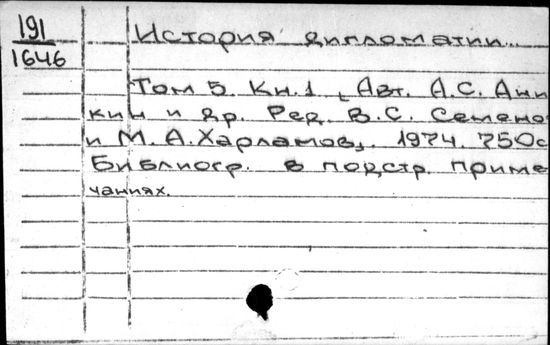 191
1646
История дипломатии..
Том 5. Кн. 1. Авт. А.С. Ани
кин и др. Ред. В.С. Семено
и М. А. Харламов, 1974. 750с
Библиогр. в подстр. приме
чаниях.